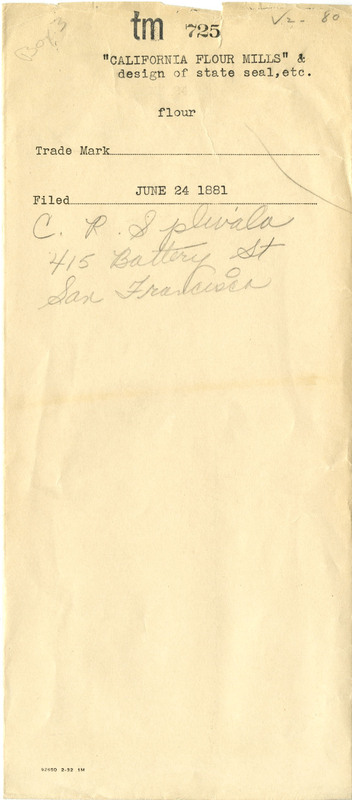 Box 3
tm 725
V2- 80
"CALIFORNIA FLOUR MILLS" &
design of state seal, etc.
flour
Trade Mark
Filed JUNE 24 1881
C. R. Splivalo
415 Battery St
San Francisco
92950 3-52 1M